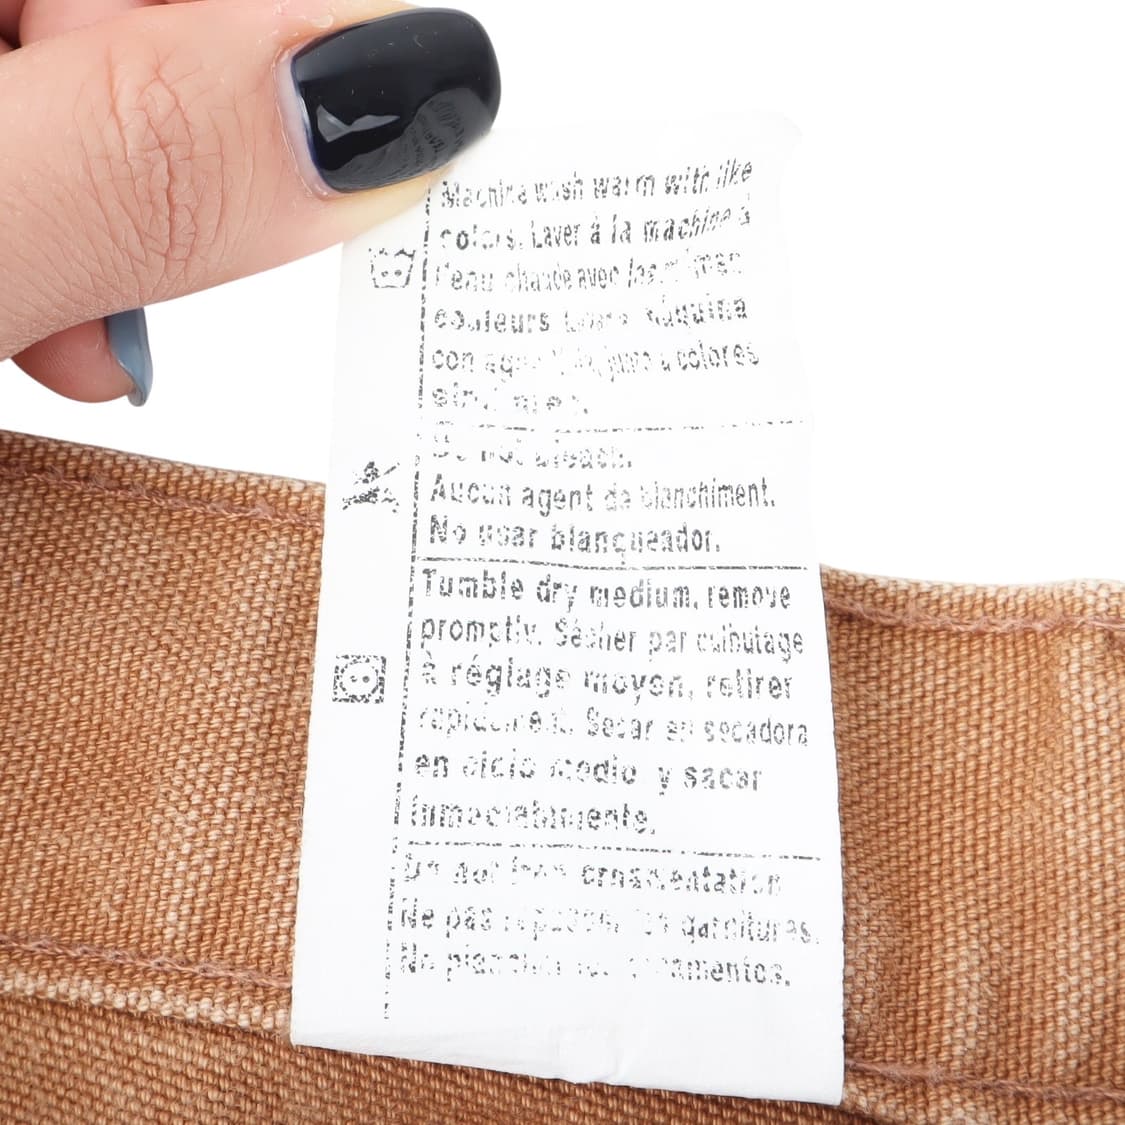 Machine wash warm with like
colors. Laver à la machine à
l'eau chaude avec les mêmes
couleurs Máquina
con agua colores
Do not bleach.
Aucun agent de blanchiment.
No usar blanqueador.
Tumble dry medium, remove
promptly. Sécher par culbutage
à réglage moyen, retirer
rapidement. Secar en secadora
en ciclo medio y sacar
inmediatamente.
Do not iron ornamentation
Ne pas repasser les garnitures.
No planchar los ornamentos.